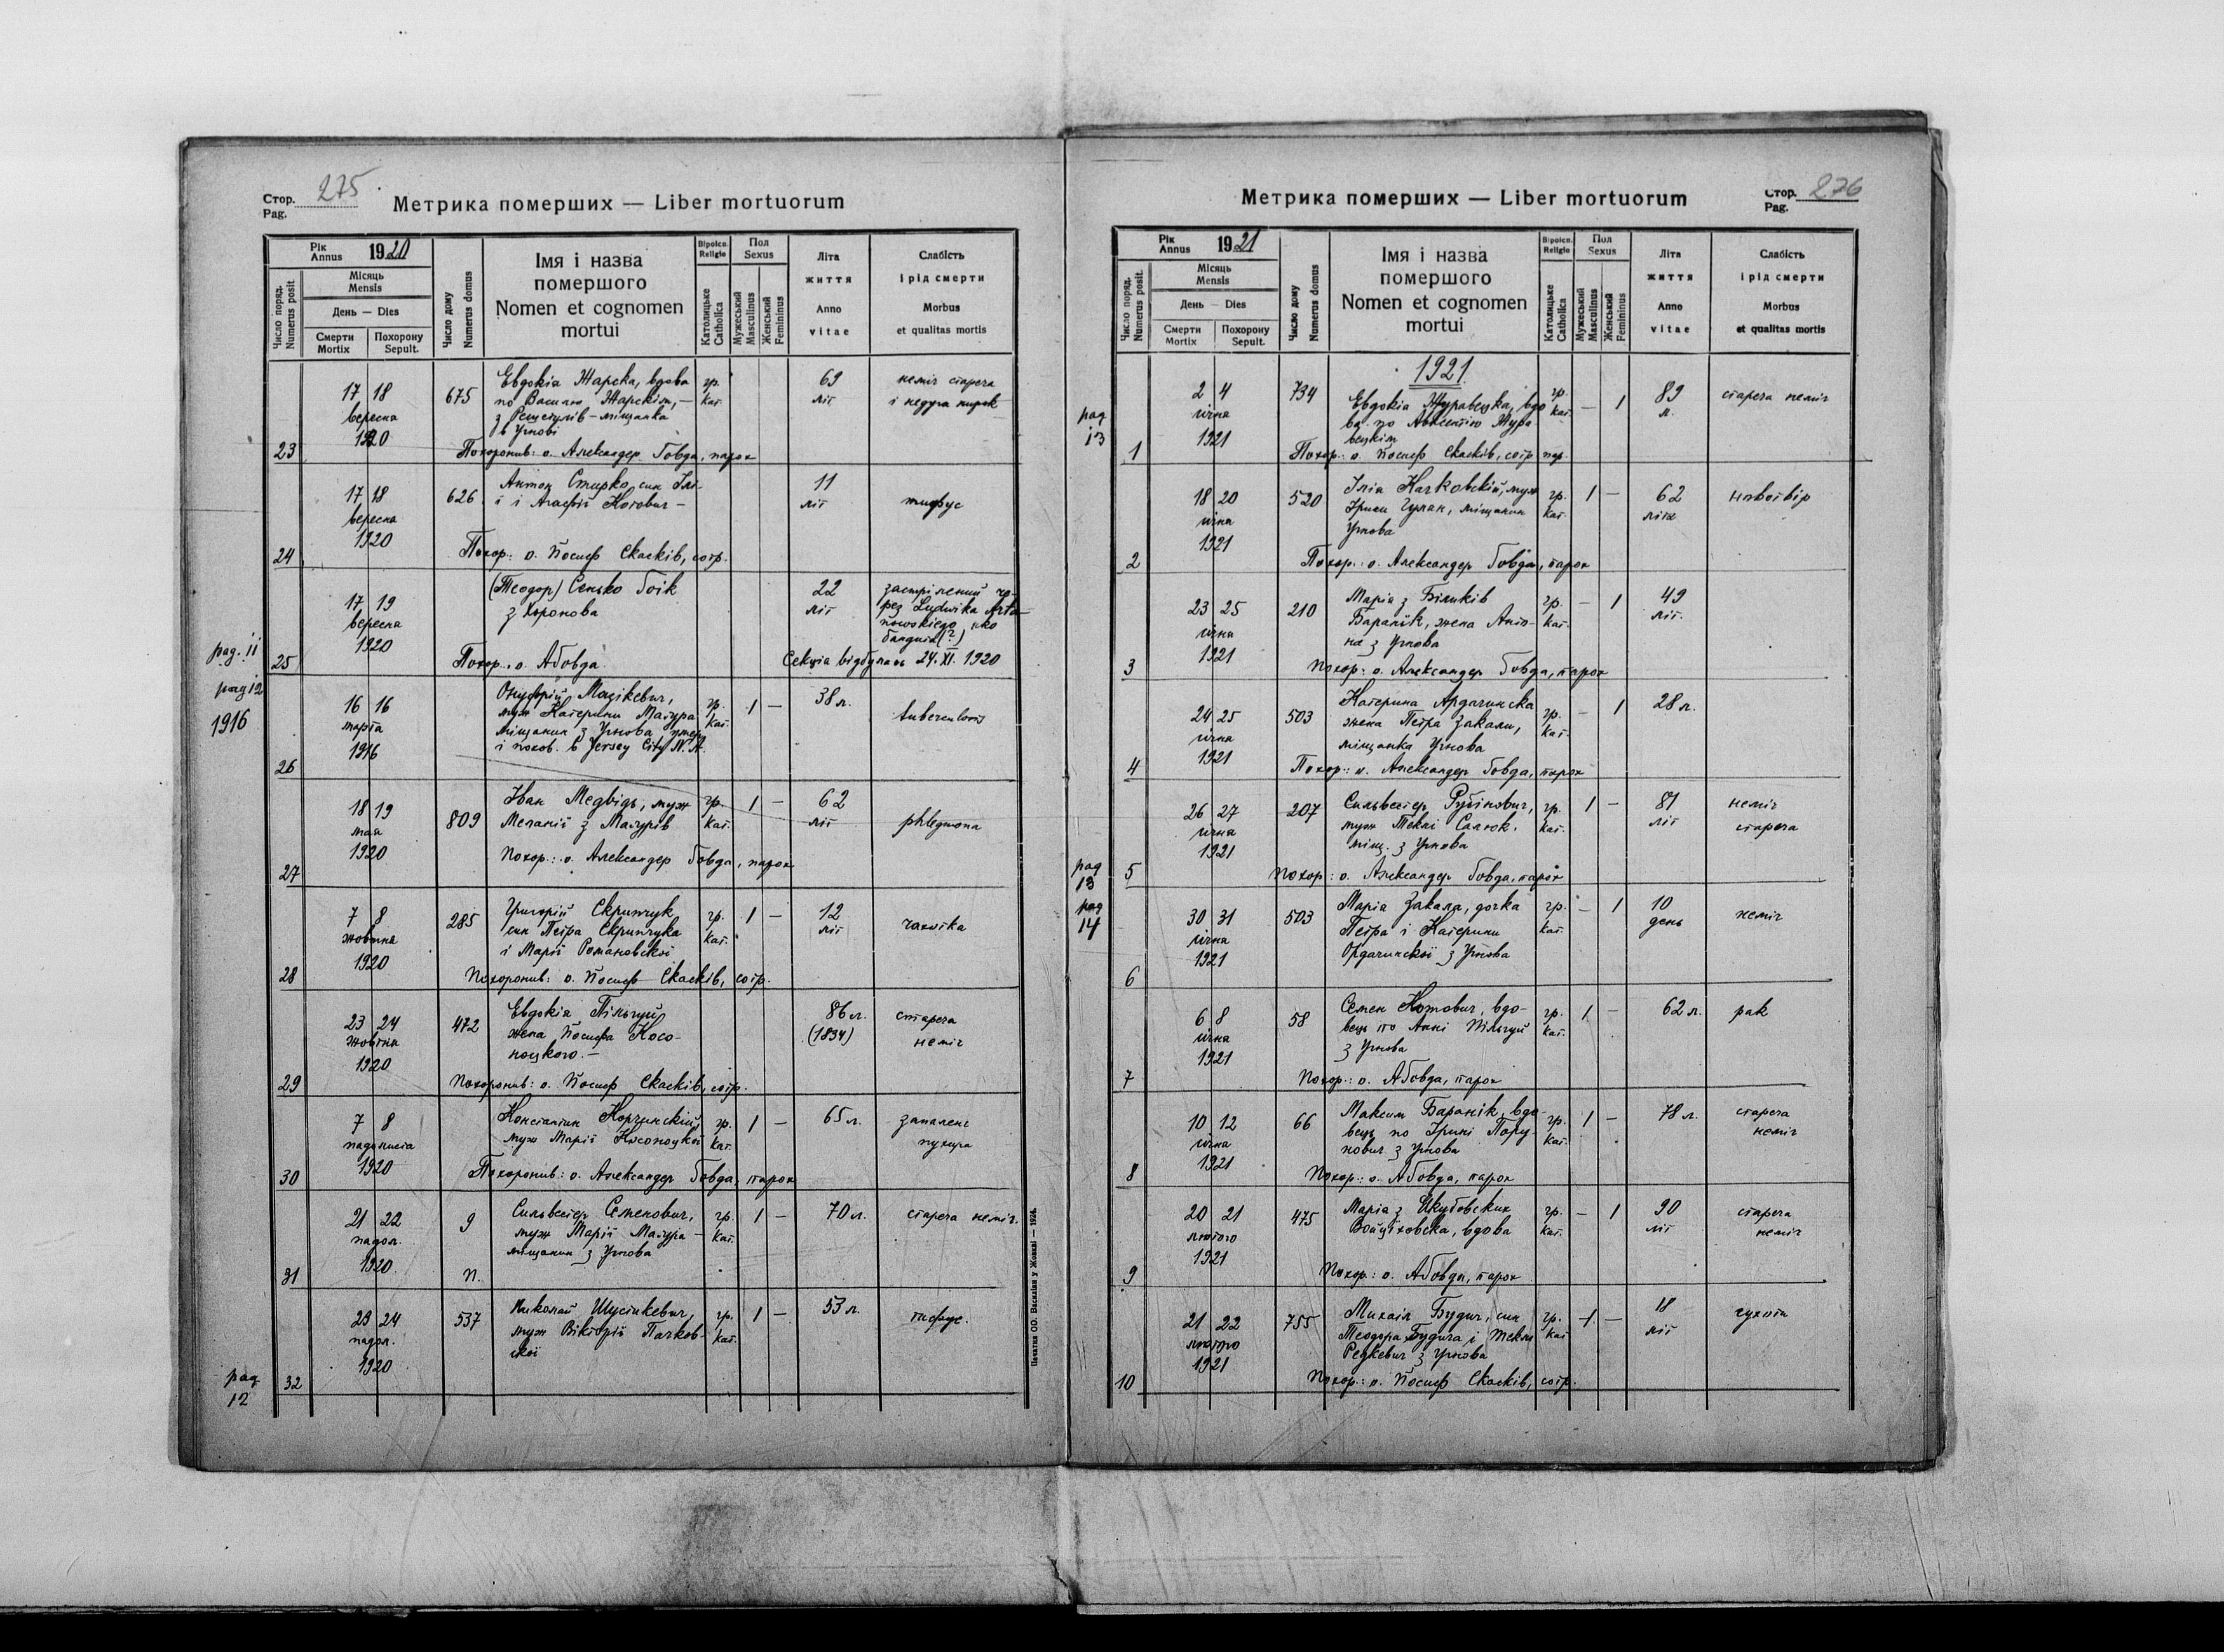 Стор. 275
Pag.
Метрика померших — Liber mortuorum
Рік 1920
Annus
Число поряд.
Numerus posit.
Місяць
Mensis
День — Dies
Смерти Похорону
Mortix Sepult.
Число дому
Numerus domus
Імя і назва
помершого
Nomen et cognomen
mortui
Віроісп.
Religio
Католицьке
Catholica
Пол
Sexus
Мужеський
Masculinus
Женський
Femininus
Літа
життя
Anno
vitae
Слабість
і рід смерти
Morbus
et qualitas mortis
23
17 18
вересня
1920
675
Евдокія Жарска, вдова
по Василю Жарскім, —
з Решетилів — міщанка
в Угнові
гр.
кат.
69
літ
неміч стареча
Похоронив: о. Александер Бовда, парох
24
17 18
вересня
1920
626
Антон Стирко, син
і Агафії Котович —
11
літ
тифус
Похор: о. Йосиф Скасків, сотр.
рад. 11
25
17 19
вересня
1920
(Теодор) Сенько Боїк
22
літ
застрілений че-
рез Ludwika
яко
бандита (?)
Похор. о. АБовда
Секція відбулась 24. XI. 1920
рад 12
1916
26
16 16
марта
1916
Онуфрій Мацікевич,
муж Катерини Мазура
міщанин з Угнова умер
і похов. в Jersey City N. A.
гр.
кат.
1 —
38 л.
tuberculosis
27
18 19
мая
1920
809
Іван Медвідь, муж
Меланії з Мазурів
гр.
кат.
1 —
62
літ
phlegmona
Похор.: о. Александер Бовда, парох
28
7 8
жовтня
1920
285
Григорій Скрипчук
син Петра Скрипчука
і Марії Романовскої
гр.
кат.
1 —
12
літ
чахотка
Похоронив: о. Йосиф Скасків, сотр.
29
23 24
жовтня
1920
472
Евдокія Пільгуй
жена Йосифа Косо-
ноцкого. —
86 л.
(1834)
стареча
неміч
Похоронив: о. Йосиф Скасків, сотр.
30
7 8
падолиста
1920
Константин Корчинскій,
муж Марії Косоноцкої
гр.
кат.
1 —
65 л.
запаленє
пухира
Похоронив: о. Александер Бовда, парох
31
21 22
падол.
1920.
9
Сильвестер Семенович,
муж Марії Мазура —
міщанин з Угнова
гр.
кат.
1 —
70 л.
стареча неміч.
П.
рад
12
32
23 24
падол.
1920
537
Николай Шустикевич,
муж Вікторії Пачков-
скої
гр.
кат.
1 —
53 л.
тифус.
Печатня ОО. Василіян у Жовкві — 1926.
Стор. 276
Pag.
Метрика померших — Liber mortuorum
Рік 1921
Annus
Число поряд.
Numerus posit.
Місяць
Mensis
День — Dies
Смерти Похорону
Mortix Sepult.
Число дому
Numerus domus
Імя і назва
помершого
Nomen et cognomen
mortui
Віроісп.
Religio
Католицьке
Catholica
Пол
Sexus
Мужеський
Masculinus
Женський
Femininus
Літа
життя
Anno
vitae
Слабість
і рід смерти
Morbus
et qualitas mortis
1921
рад
13
1
2 4
січня
1921
734
Евдокія Журавецка, вдо
ва по Авксентію Жура
вецкім
гр.
кат.
— 1
89
л.
стареча неміч
Похор: о. Йосиф Скасків, сотр
2
18 20
січня
1921
520
Ілія Качковскій, муж
Ірини Гулак, міщанин
Угнова
гр.
кат.
1 —
62
літа
новотвір
Похор.: о. Александер Бовда, парох
3
23 25
січня
1921
210
Марія з Біликів
Баранїк, жена Анто-
на з Угнова
гр.
кат.
— 1
49
літ.
Похор: о. Александер Бовда, парох
4
24 25
січня
1921
503
Катерина Ардачинска
жена Петра Закали,
міщанка Угнова
гр.
кат.
— 1
28 л.
Похор.: о. Александер Бовда, парох
рад
13
5
26 27
січня
1921
207
Сильвестер Рубінович,
муж Теклі Салюк.
міщ. з Угнова
гр.
кат.
1 —
81
літ
неміч
стареча
Похор: о. Александер Бовда, парох
рад
14
6
30 31
січня
1921
503
Марія Закала, дочка
Петра і Катерини
Ордачинскої з Угнова
гр.
кат.
— 1
10
день
неміч
7
6 8
січня
1921
58
Семен Котович, вдо-
вець по Анні Пільгуй
з Угнова
гр.
кат.
1 —
62 л.
рак
Похор.: о. АБовда, парох
8
10 12
січня
1921
66
Максим Баранїк, вдо-
вець по Ірині Пару-
нович з Угнова
гр.
кат.
1 —
78 л.
стареча
неміч
Похор: о. АБовда, парох
9
20 21
лютого
1921
475
Марія з Якубовских
Войціховска, вдова
гр.
кат.
— 1
90
літ
стареча
неміч
Похор: о. АБовда, парох
10
21 22
лютого
1921
755
Михаіл Будич, син
Теодора Будича і Теклі
Редкевич з Угнова
гр.
кат
1 —
18
літ
сухоти
Похор: о. Йосиф Скасків, сотр.